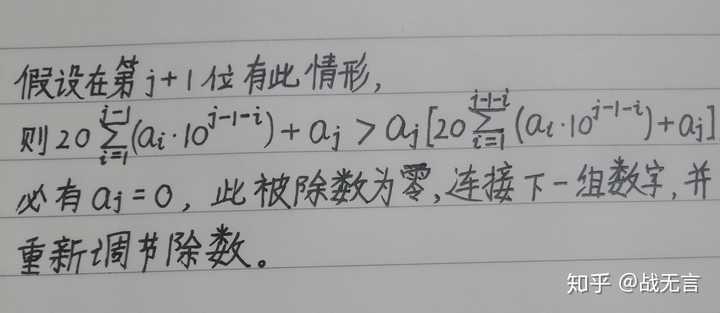 假设在第j+1位有此情形,
则20∑_{i=1}^{j-1}(a_i·10^{j-1-i})+a_j>a_j[20∑_{i=1}^{j-1-i}(a_i·10^{j-1-i})+a_j]
必有a_j=0,此被除数为零,连接下一组数字,并
重新调节除数。
知乎 @战无言